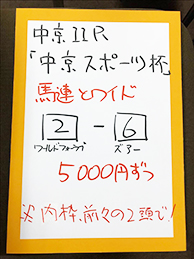 中京11R
「中京スポーツ杯」
馬連とワイド
2 - 6
ワールドフォーラブ ズアー
5000円ずつ
※内枠、前々の2頭で!